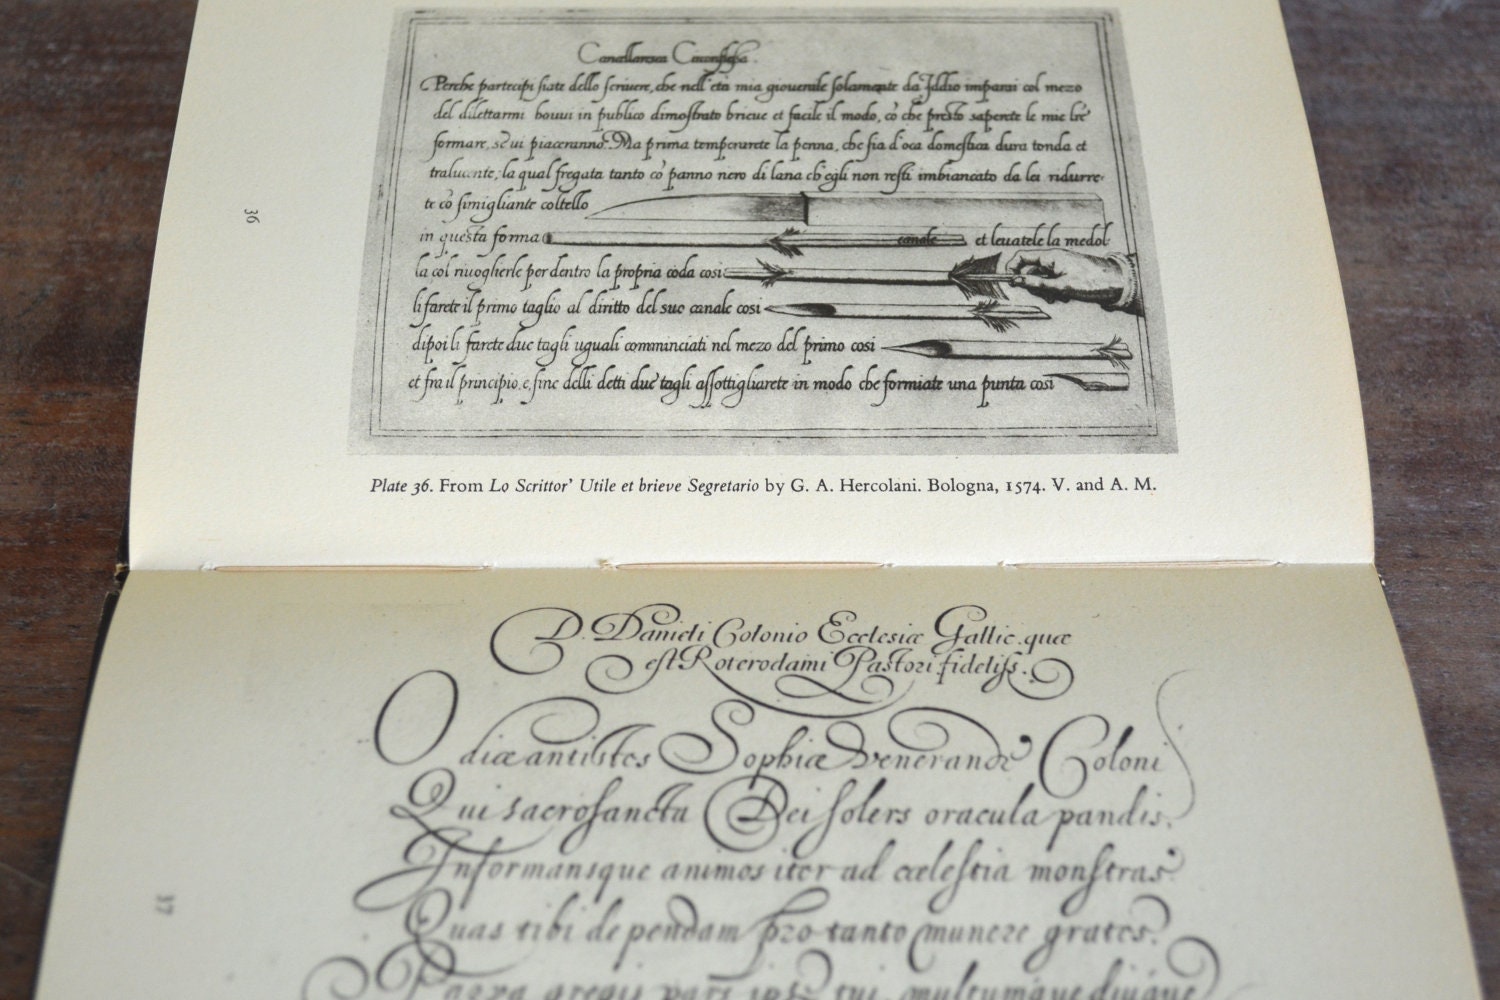 Perche partecipi siate dello scriuere, che nell'eta mia giouenile solamente da Iddio imparai col mezo
del dilettarmi houui in publico dimostrato brieue et facile il modo, cō che presto saperete le mie lr̄e
formare, se ui piaceranno. Ma prima temperarete la penna, che sia d'oca domestica dura tonda et
tralucente, la qual fregata tanto cō panno nero di lana ch'egli non resti imbiancato da lei ridurre-
te cō simigliante coltello
in questa forma canale et leuatele la medol-
la col riuoglierle per dentro la propria coda cosi
li farete il primo taglio al diritto del suo canale cosi
dipoi li farete due tagli uguali comminciati nel mezo del primo cosi
et fra il principio, e, fine delli detti due tagli assottigliarete in modo che formiate una punta cosi
36
Plate 36. From Lo Scrittor' Utile et brieve Segretario by G. A. Hercolani. Bologna, 1574. V. and A. M.
D. Danieli Colonio Ecclesiæ Gallic. quæ
est Roterodami Pastori fideliss.
O diæ antistes Sophiæ venerande Coloni
Qui sacrosancta Dei solers oracula pandis.
Informansque animos iter ad cœlestia monstras
Quas tibi dependam pro tanto munere grates.
gregis pars
37